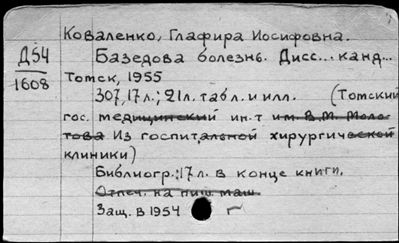 Коваленко, Глафира Иосифовна.
Д54
1608
Базедова болезнь. Дисс... канд...
Томск, 1955
307,17 л.; 21 л. табл. и илл. (Томский
гос. медицинский ин-т им. В.М. Моло-
това Из госпитальной хирургической
клиники)
Библиогр.: 17 л. в конце книги.
Отпеч. на пиш. маш.
Защ. в 1954 г